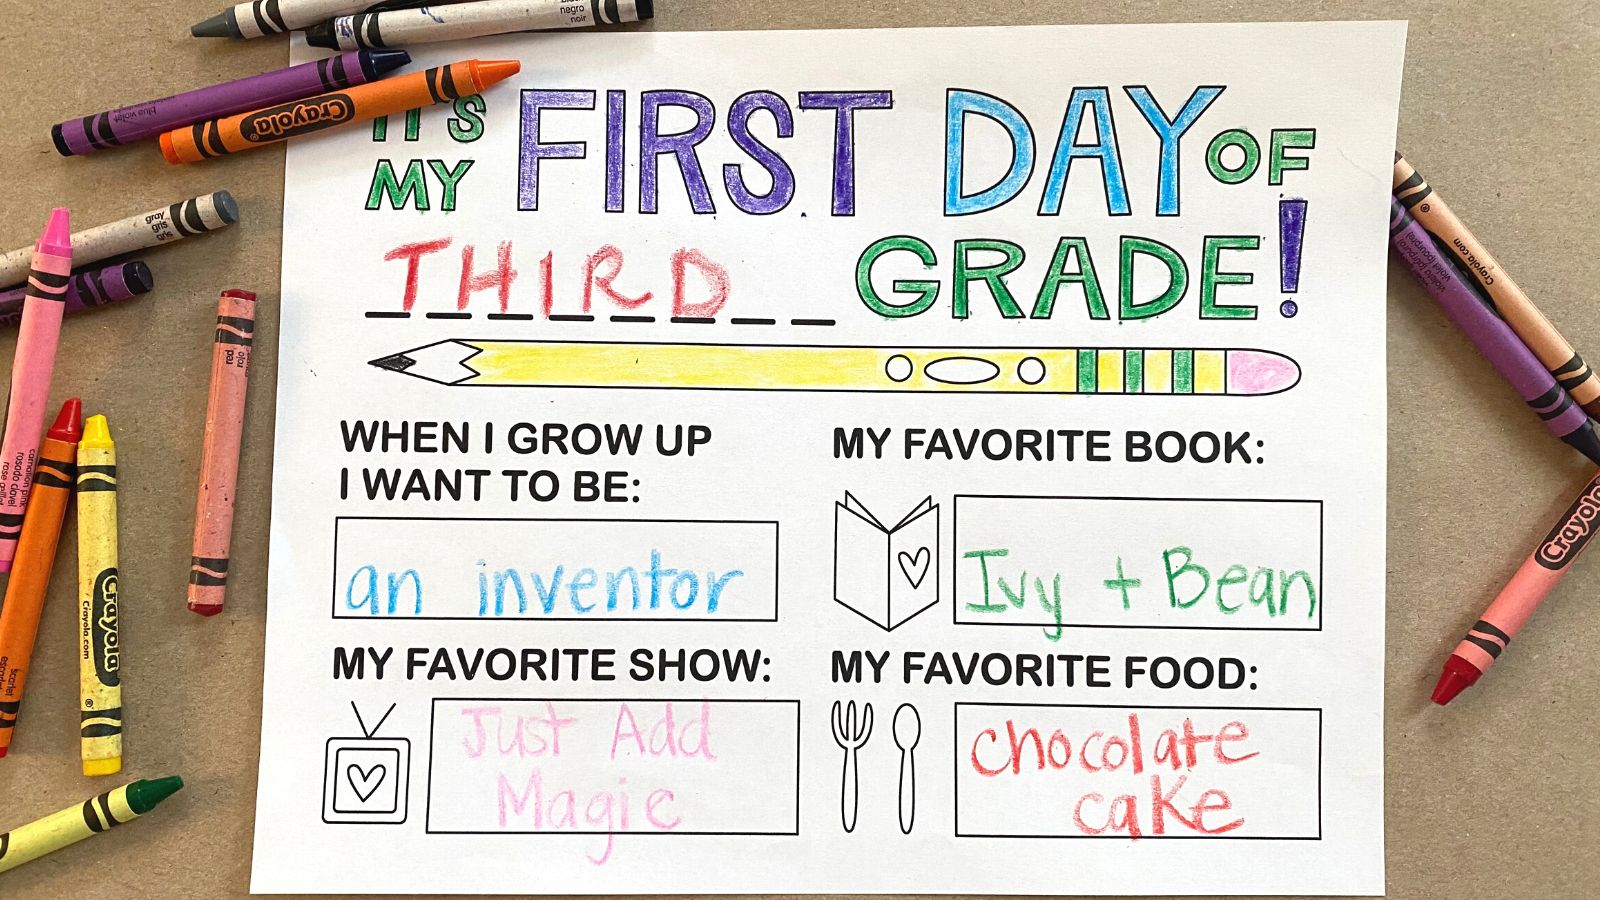 IT'S
MY
FIRST DAY OF
THIRD GRADE!
WHEN I GROW UP
I WANT TO BE:
an inventor
MY FAVORITE BOOK:
Ivy + Bean
MY FAVORITE SHOW:
Just Add
Magic
MY FAVORITE FOOD:
chocolate
cake
negro
noir
blue violet
Crayola
gray
gris
gris
red
carnation pink
rosado clavel
rose œillet
scarlet
escarlata
Crayola
Crayola.com
Crayola.com
violet (purple)
Crayola